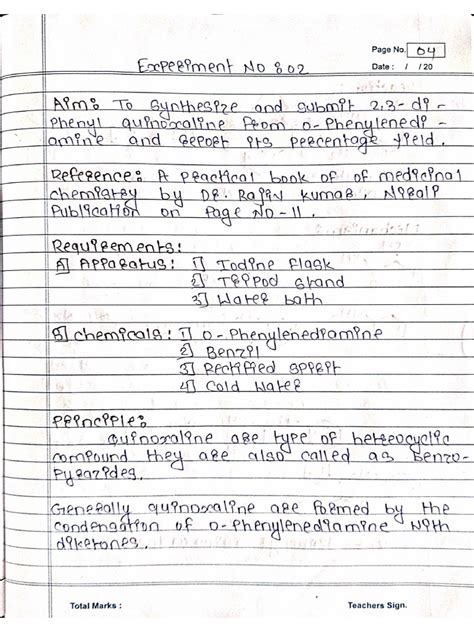 Page No. 04
Date : / /20
Experiment No : 02
Aim : To synthesize and submit 2,3-di-
Phenyl quinoxaline from o-Phenylenedi-
amine and report its percentage yield.
Reference : A practical book of of medicinal
chemistry by Dr. Rajiv kumar, Nirali
Publication on Page No - 11.
Requirements :
A] Apparatus : 1] Iodine flask
2] Tripod stand
3] Water bath
B] chemicals : 1] o-Phenylenediamine
2] Benzil
3] Rectified spirit
4] Cold Water
Principle :
Quinoxaline are type of heterocyclic
compound they are also called as Benzo-
Pyrazides.
Generally quinoxaline are formed by the
condensation of o-Phenylenediamine with
diketones.
Total Marks :
Teachers Sign.